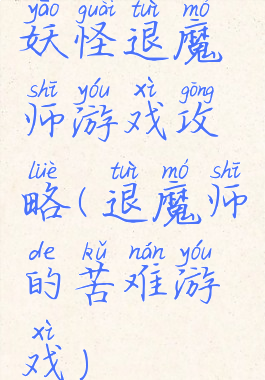 yāo guài tuì mó
妖怪退魔
shī yóu xì gōng
师游戏攻
lüè tuì mó shī
略(退魔师
de kǔ nán yóu
的苦难游
xì
戏)